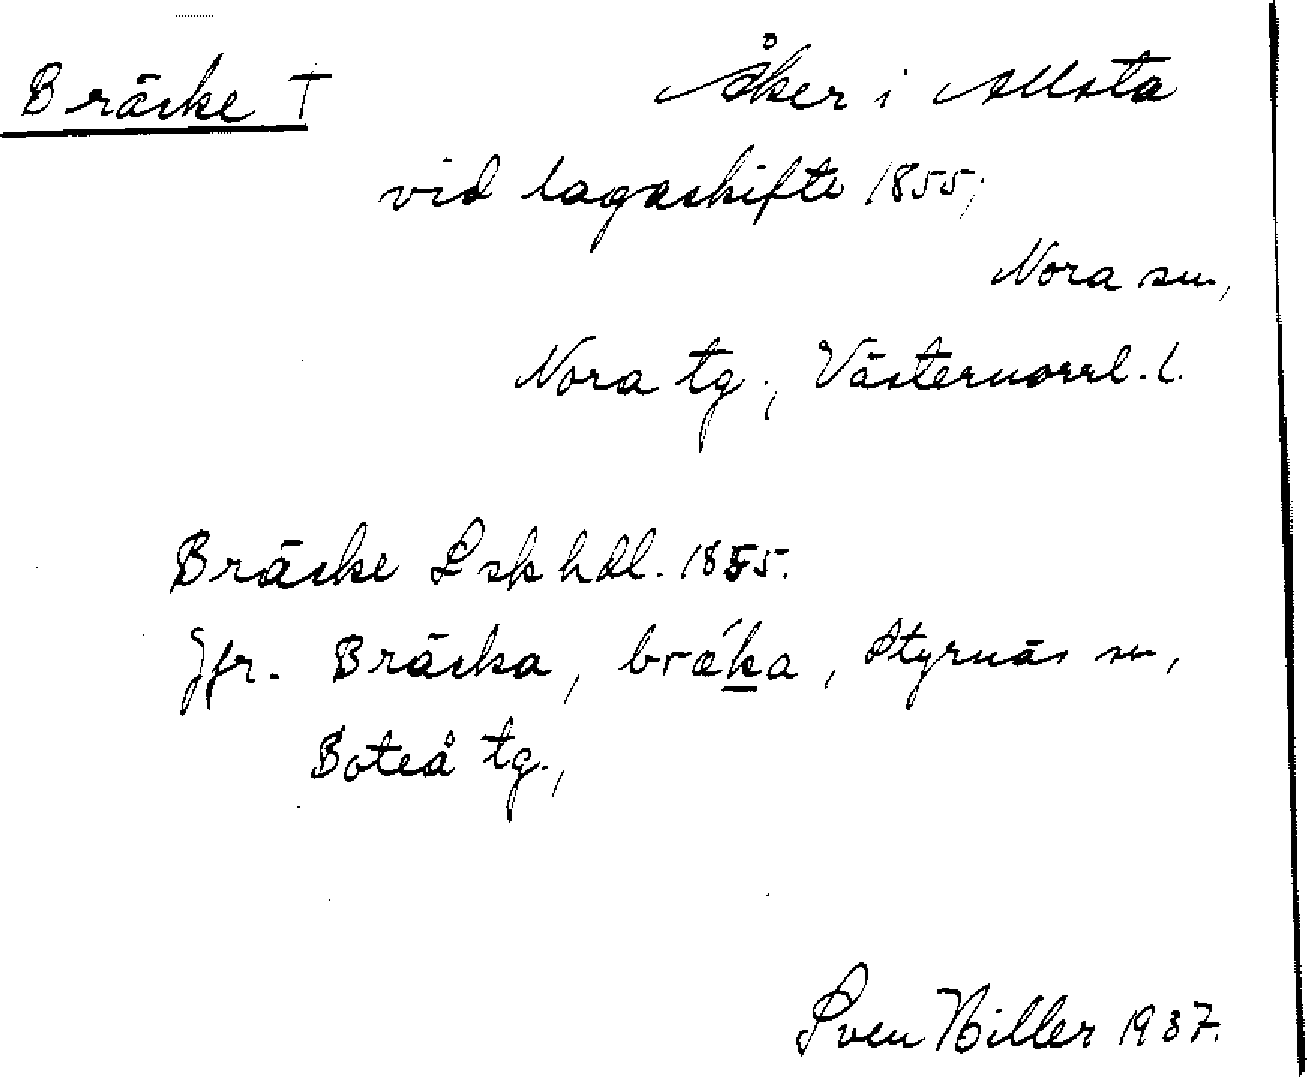 Bräcke † Åker i Allsta
vid lagaskifte 1855;
Nora sn,
Nora tg., Västernorrl. l.
Bräcke Lskhdl. 1855.
Jfr. Bräcka, bráka, Styrnäs sn,
Boteå tg.,
Sven Hiller 1937.